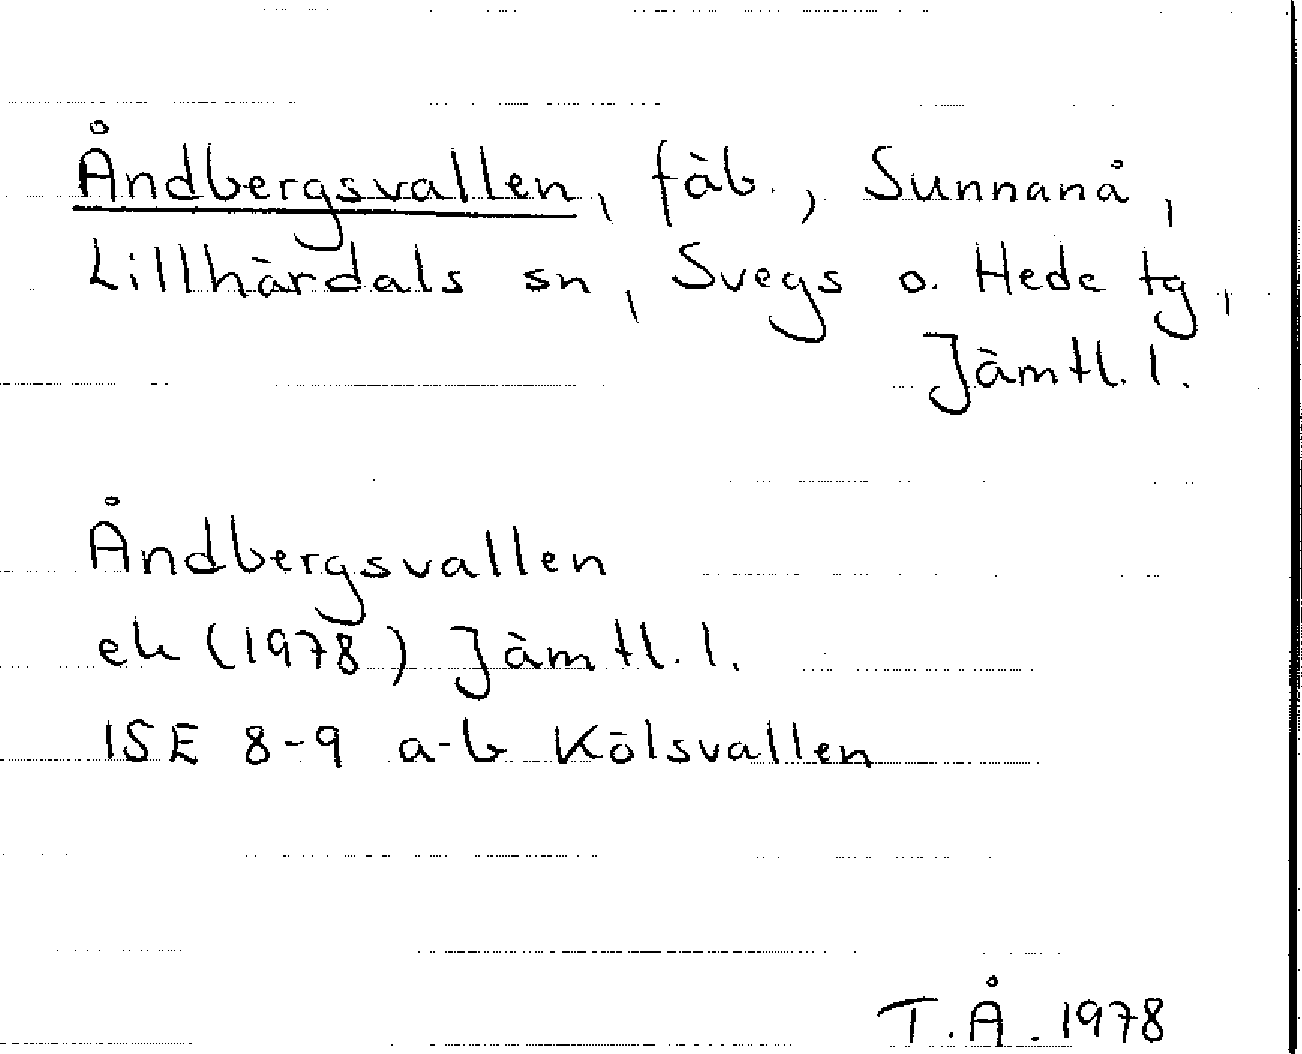 Åndbergsvallen, fäb., Sunnanå,
Lillhärdals sn, Svegs o. Hede tg,
Jämtl. l.
Åndbergsvallen
ek (1978) Jämtl. l.
15E 8-9 a-b Kölsvallen
T.Å. 1978